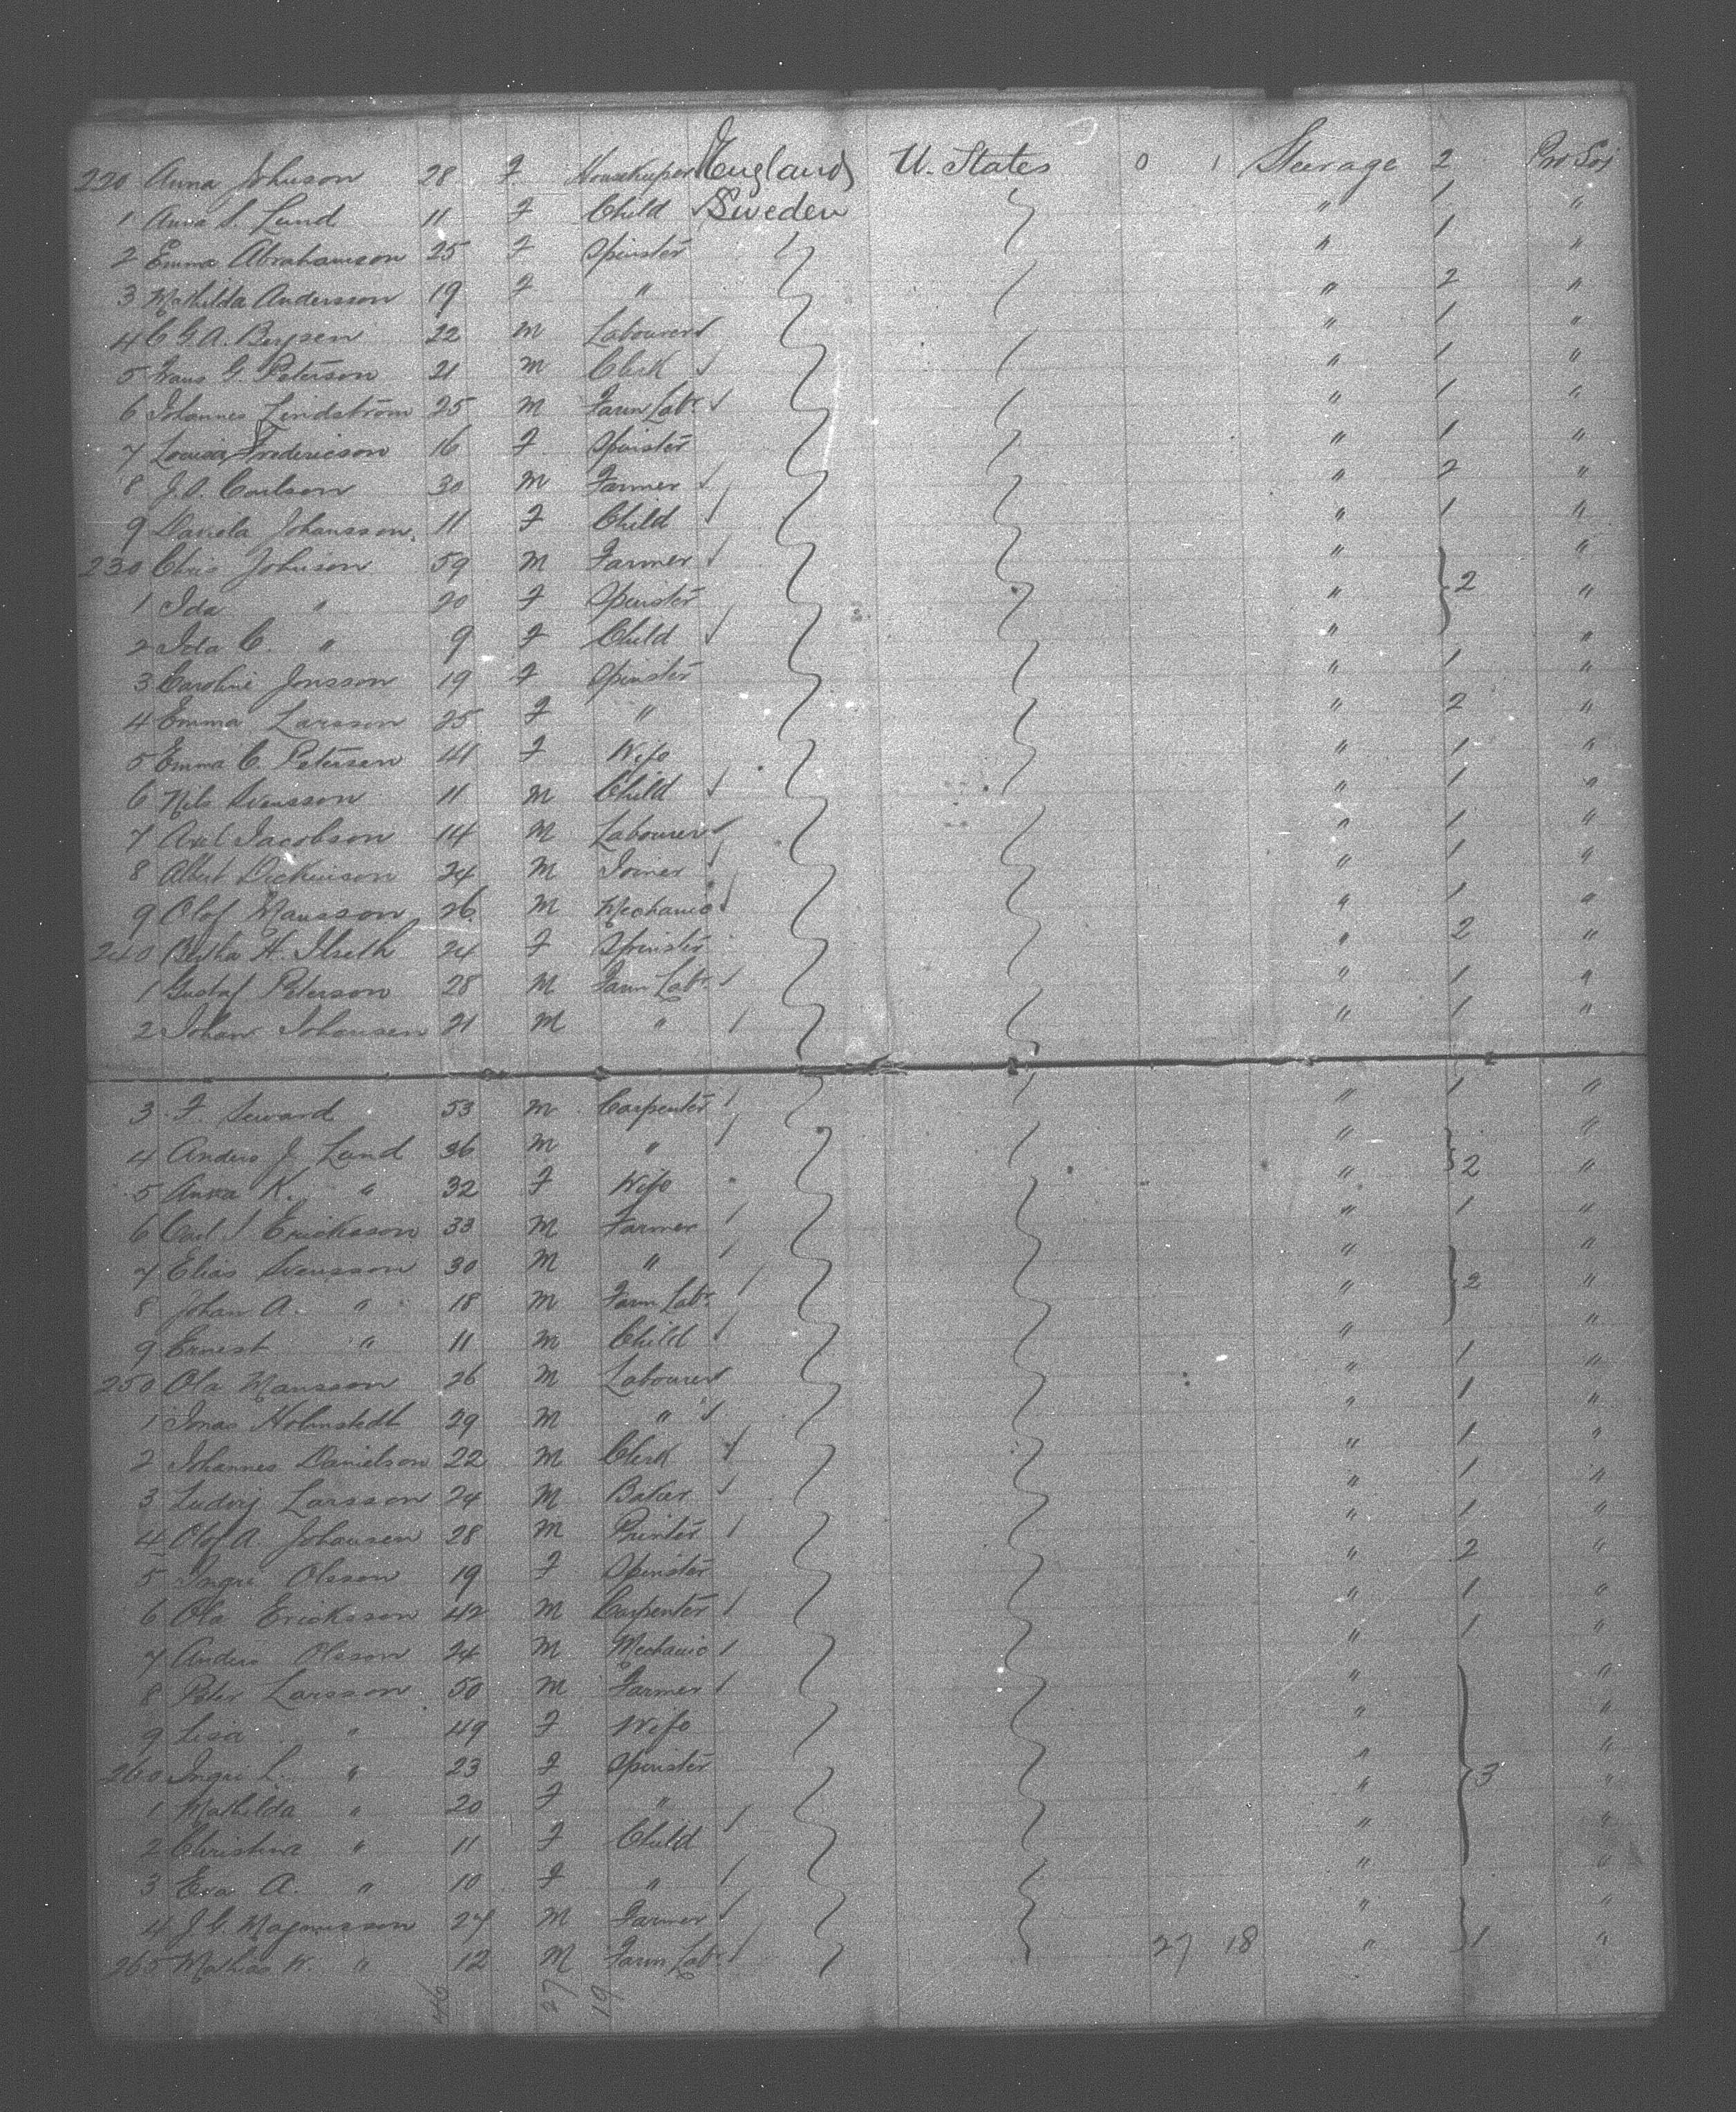 220 Anna Johnson 28 F Housekeeper England U. States 0 1 Steerage 2 Pro Soj
1 Anna S. Lund 11 F Child Sweden " 1 "
2 Emma Abrahamson 25 F Spinster " 1 "
3 Mathilda Andersson 19 F " " 2 "
4 C G. A. 22 M Labourer " 1 "
5 G. Peterson 21 M Clerk " 1 "
6 Johannes Lindstrom 25 M Farm Labr " 1 "
7 Louisa Fredericson 16 F Spinster " 1 "
8 J. O. Carlson 30 M Farmer " 2 "
9 Daniela Johansson 11 F Child " 1 "
230 Chris Johnson 59 M Farmer " 2 "
1 Ida " 20 F Spinster " "
2 Ida C. " 9 F Child " "
3 Caroline Jonsson 19 F Spinster " 1 "
4 Emma Larsson 25 F " " 2 "
5 Emma C. Petersen 41 F Wife " 1 "
6 Nils Svensson 11 M Child " 1 "
7 Axel Jacobson 14 M Labourer " 1 "
8 Albert Dickinson 24 M Joiner " 1 "
9 Olof Mansson 26 M Mechanic " 1 "
240 Bertha H. 24 F Spinster " 2 "
1 Gustaf Peterson 28 M Farm Labr " 1 "
2 Johan Johansen 21 M " " 1 "
3 F. Seward 53 M Carpenter " 1 "
4 Anders J. Lund 36 M " " 2 "
5 Anna K. " 32 F Wife " "
6 Carl J Ericksson 33 M Farmer " 1 "
7 Elias Svensson 30 M " " 2 "
8 Johan A. " 18 M Farm Labr " "
9 Ernest " 11 M Child " "
250 Ola Mansson 26 M Labourer " 1 "
1 Jonas Holmstedt 29 M " " 1 "
2 Johannes Danielson 22 M Clerk " 1 "
3 Ludvig Larsson 24 M Baker " 1 "
4 Olof A. Johansen 28 M Printer " 1 "
5 Ingri Olsson 19 F Spinster " 2 "
6 Ola Ericksson 42 M Carpenter " 1 "
7 Anders Olsson 24 M Mechanic " 1 "
8 Peter Larsson 50 M Farmer " "
9 Lisa " 49 F Wife " "
260 Ingri L. " 23 F Spinster " 3 "
1 Mathilda " 20 F " " "
2 Christina " 11 F Child " "
3 Eva A. " 10 F " " "
4 J. C. Magnusson 27 M Farmer " "
265 Mathias W. " 12 M Farm Labr 27 18 " 1 "
46 27 19